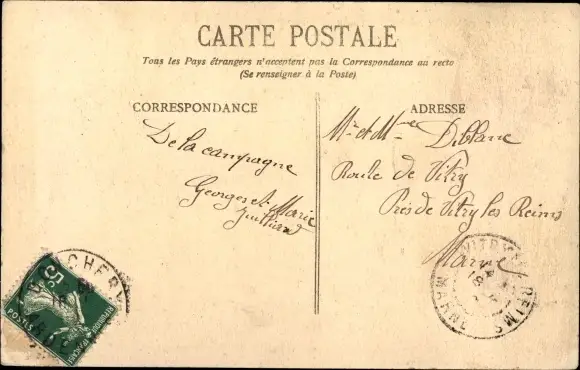 CARTE POSTALE
Tous les Pays étrangers n'acceptent pas la Correspondance au recto
(Se renseigner à la Poste)
CORRESPONDANCE
De la campagne
Georges et Marie
ADRESSE
Mr et Mme Diblanc
Route de Vitry
Près de Vitry les Reims
Marne
5c
POSTES
VITRY REIMS
MARNE